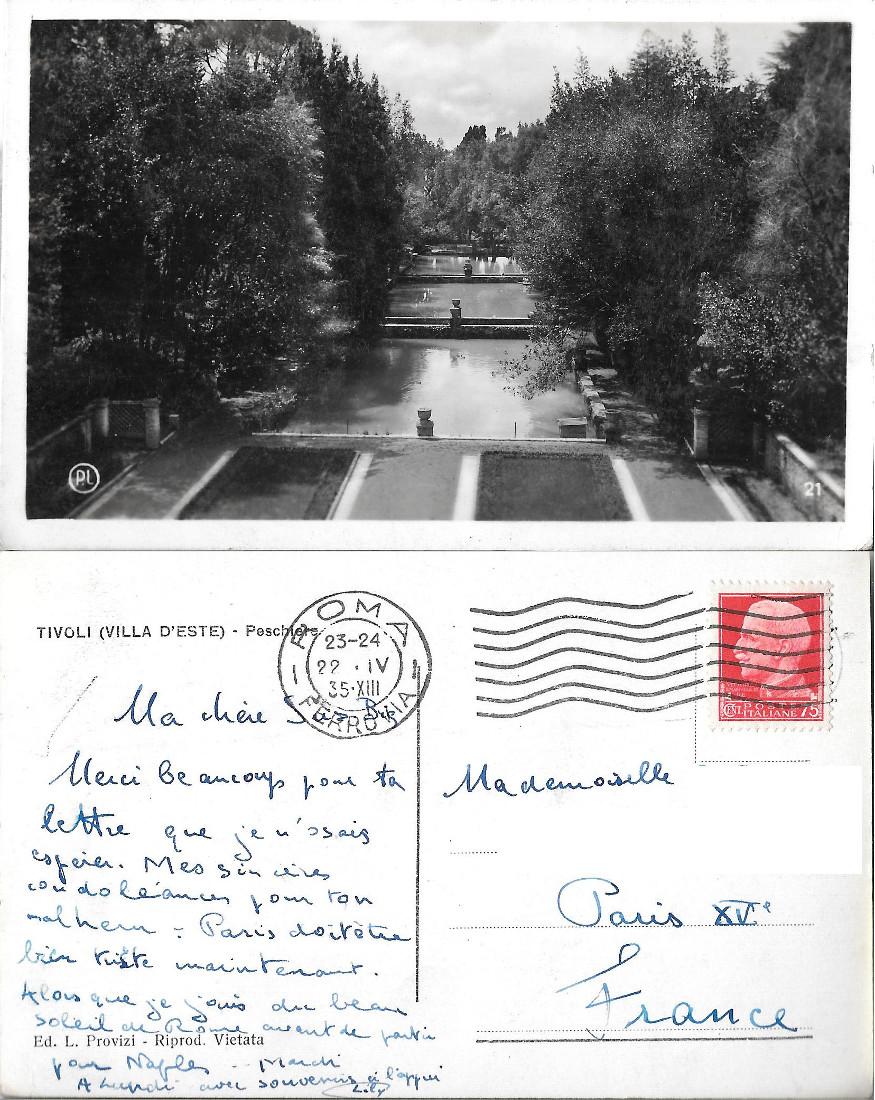 P.I.
21
TIVOLI (VILLA D'ESTE) - Peschiere
ROMA
23-24
22 . IV
35·XIII
FERROVIA
POSTE
ITALIANE 75
Ma chère
Merci beaucoup pour ta
lettre que je n'osais
espérer. Mes sincères
condoléances pour ton
malheur - Paris doit être
bien triste maintenant.
Alors que je jouis du beau
soleil de Rome avant de partir
pour Naples - Mardi
A Lundi avec souvenirs à l'appui
Lily
Ed. L. Provizi - Riprod. Vietata
Mademoiselle
Paris XVe
France